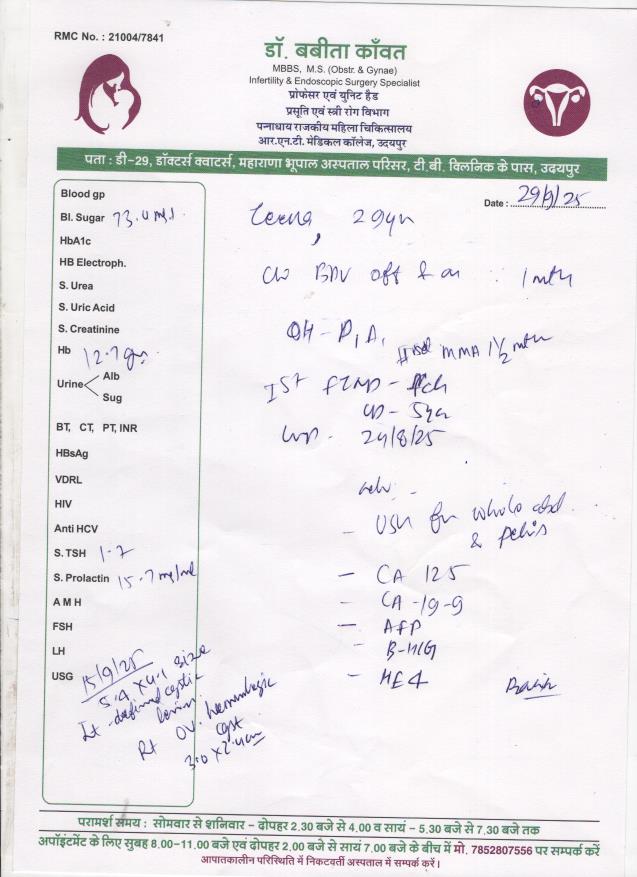 RMC No. : 21004/7841
डॉ. बबीता काँवत
MBBS, M.S. (Obstr. & Gynae)
Infertility & Endoscopic Surgery Specialist
प्रोफेसर एवं युनिट हैड
प्रसूति एवं स्त्री रोग विभाग
पन्नाधाय राजकीय महिला चिकित्सालय
आर.एन.टी. मेडिकल कॉलेज, उदयपुर
पता : डी-29, डॉक्टर्स क्वाटर्स, महाराणा भूपाल अस्पताल परिसर, टी.बी. क्लिनिक के पास, उदयपुर
Date : 29/9/25
Blood gp
Bl. Sugar 73.0
HbA1c
HB Electroph.
S. Urea
S. Uric Acid
S. Creatinine
Hb 12.7 gm
Urine Alb
Sug
BT, CT, PT, INR
HBsAg
VDRL
HIV
Anti HCV
S. TSH 1.7
S. Prolactin 15.7 mg/ml
A M H
FSH
LH
USG 15/9/25
5.4 x 4.1 size
Lt - defined cystic
Rt ov. hemorrhagic
cyst
3.0 x 2.4 cm
29yr
c/o BDV off & on : 1 mth
OH - P1A1
MMA 1 1/2 mth
Ist FTND - fch
LD - 5yr
LMP - 29/8/25
Adv -
- USG for whole abd
& pelvis
- CA 125
- CA-19-9
- AFP
- B-HCG
- HE4
परामर्श समय : सोमवार से शनिवार - दोपहर 2.30 बजे से 4.00 व सायं - 5.30 बजे से 7.30 बजे तक
अपॉइंटमेंट के लिए सुबह 8.00-11.00 बजे एवं दोपहर 2.00 बजे से सायं 7.00 बजे के बीच में मो. 7852807556 पर सम्पर्क करें
आपातकालीन परिस्थिति में निकटवर्ती अस्पताल में सम्पर्क करें।